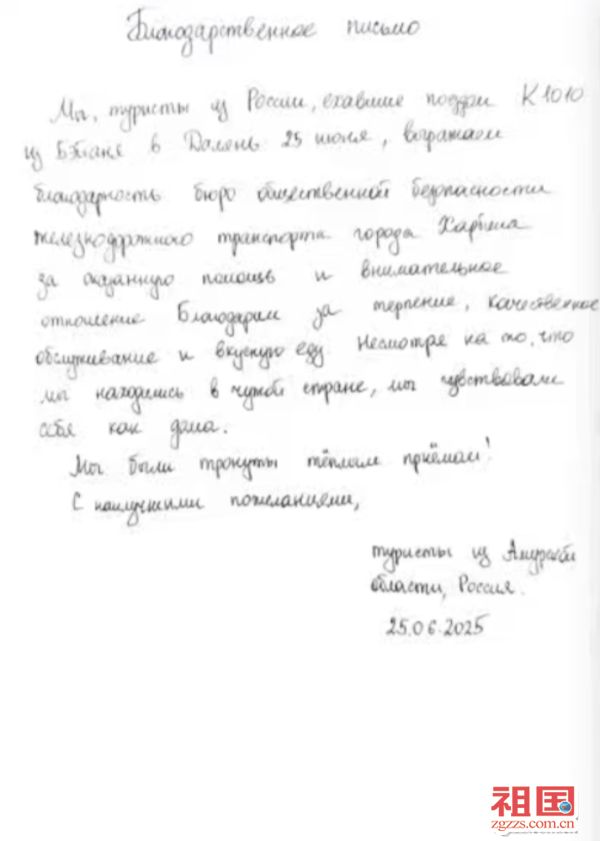 Благодарственное письмо
Мы, туристы из России, ехавшие поездом К1010
из Бэйане в Далянь 25 июня, выражаем
благодарность бюро общественной безопасности
железнодорожного транспорта города Харбина
за оказанную помощь и внимательное
отношение Благодарим за терпение, качественное
обслуживание и вкусную еду Несмотря на то, что
мы находились в чужой стране, мы чувствовали
себя как дома.
Мы были тронуты тёплым приёмом!
С наилучшими пожеланиями,
туристы из Амурской
области, Россия.
25.06.2025
祖国
zgzzs.com.cn